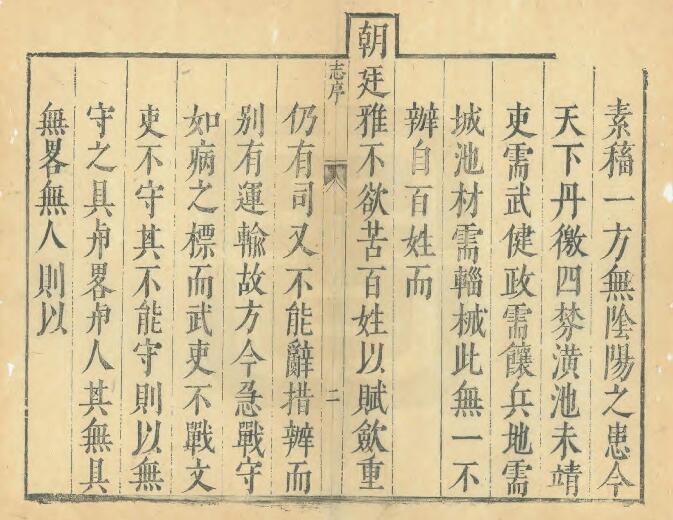 素稱一方無陰陽之患今
天下丹徼四棼潢池未靖
吏需武健政需饟兵地需
城池材需輜械此無一不
辦自百姓而
朝廷雅不欲苦百姓以賦歛重
志序
二
仍有司又不能辭措辦而
別有運輸故方今急戰守
如病之標而武吏不戰文
吏不守其不能守則以無
守之具卢畧卢人其無具
無畧無人則以